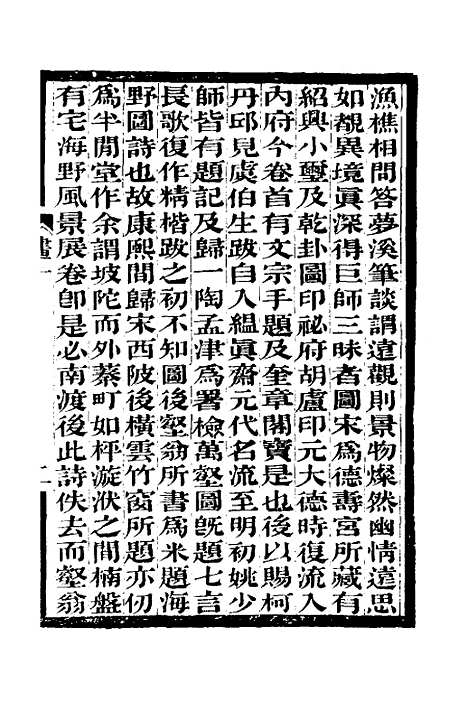 漁樵相問答夢溪筆談謂遠觀則景物燦然幽情遠思
如覩異境眞深得巨師三昧者圖宋爲德壽宮所藏有
紹興小璽及乾卦圖印祕府胡盧印元大德時復流入
內府今卷首有文宗手題及奎章閣寶是也後以賜柯
丹邱見虞伯生跋自入縕眞齋元代名流至明初姚少
師皆有題記及歸一陶孟津爲署檢萬壑圖旣題七言
長歌復作精楷跋之初不知圖後壑翁所書爲米題海
野圖詩也故康熙間歸宋西陂後橫雲竹窗所題亦仞
爲半閒堂作余謂坡陀而外蔡町如枰漩洑之間楠盤
有宅海野風景展卷卽是必南渡後此詩佚去而壑翁
畫一
二